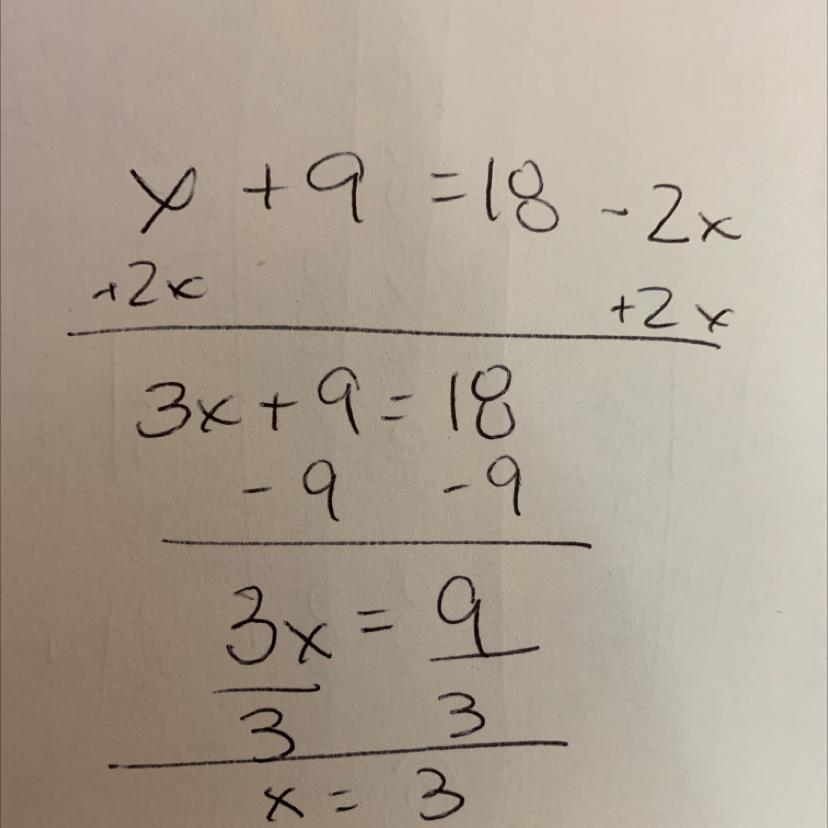 x + 9 = 18 - 2x
+2x +2x
3x + 9 = 18
- 9 - 9
3x = 9
3 3
x = 3